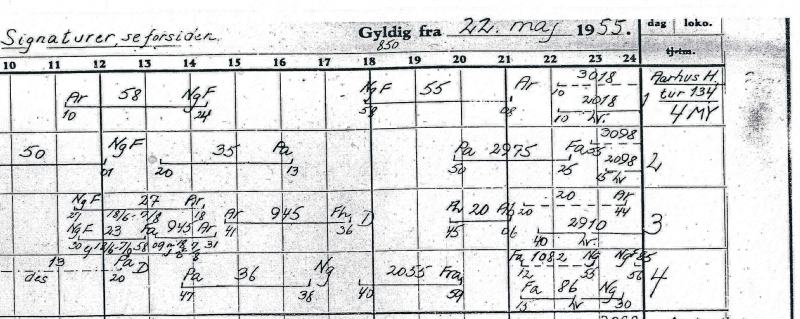 Signaturer, se forsiden. Gyldig fra 22. maj 1955. dag loko.
850
tjtim.
10 11 12 13 14 15 16 17 18 19 20 21 22 23 24
Ar 58 NgF NgF 55 Ar 3018 Aarhus H.
10 24 58 08 10 2018 1 tur 134
10 Lv. 4 MY
50 NgF 35 Pa Pa 2975 Fa 3098
01 20 13 50 25 2098 2
Lv
NgF 27 Ar Ar 945 Fh D 20 Ab 20 Ar
21 18/6-7/8 18 41 36 45 06 20 44
NgF 23 Fa 945 Ar 2910 3
30 58 09 31 40 Lv.
13 Pa D Pa 36 Ng 2055 Fra Fa 1082 Ng NgF
des 20 47 38 40 59 12 55 56 4
Fa 86 Ng
15 Lv 30